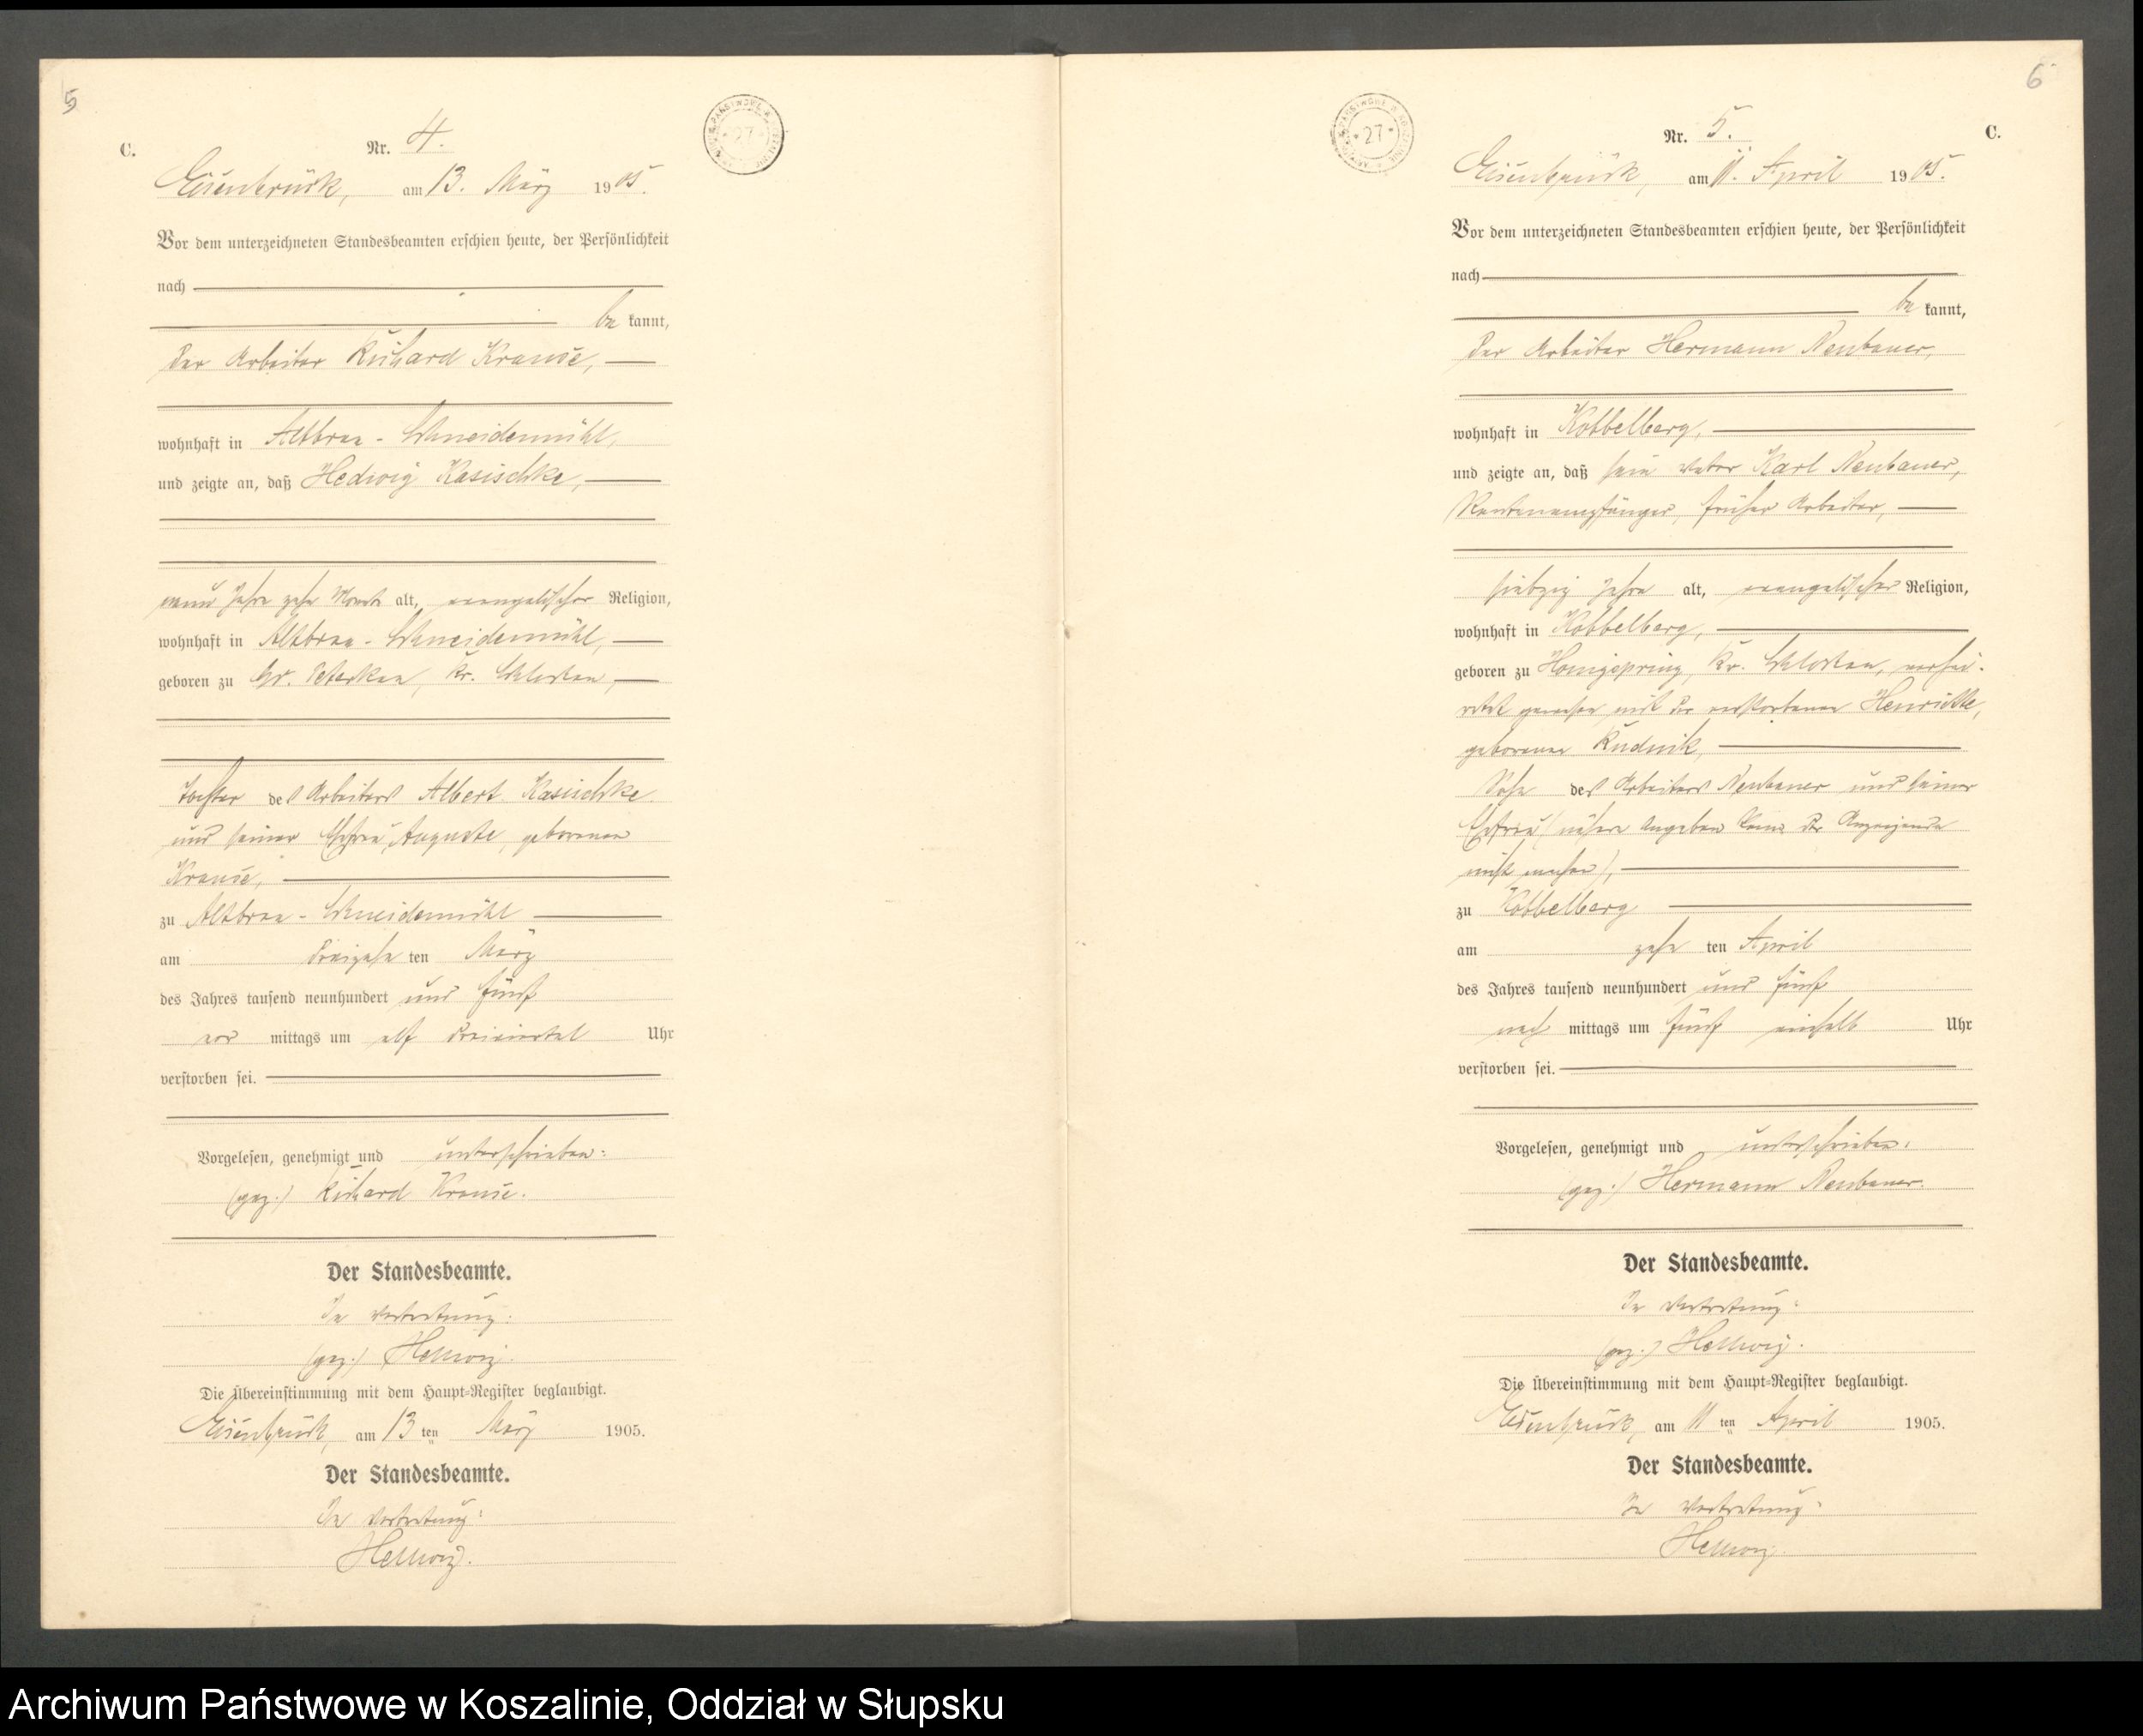 5
C.
Nr. 4.
Eisenbrück, am 13. März 1905.
Vor dem unterzeichneten Standesbeamten erschien heute, der Persönlichkeit
nach
be kannt,
der Arbeiter Richard Krause,
wohnhaft in Altbraa - Schneidemühl,
und zeigte an, daß Hedwig Kasischke,
neun Jahre zehn Monate alt, evangelischer Religion,
wohnhaft in Altbraa - Schneidemühl,
geboren zu Gr. Peterkau, Kr. Schlochau,
Tochter des Arbeiters Albert Kasischke
und seiner Ehefrau, Auguste, geborenen
Krause,
zu Altbraa - Schneidemühl
am dreizehn ten März
des Jahres tausend neunhundert und fünf
vor mittags um elf dreiviertel Uhr
verstorben sei.
Vorgelesen, genehmigt und unterschrieben:
(gez.) Richard Krause.
Der Standesbeamte.
In Vertretung:
(gez.) Hellwig.
Die Übereinstimmung mit dem Haupt-Register beglaubigt.
Eisenbrück, am 13 ten März 1905.
Der Standesbeamte.
In Vertretung:
Hellwig.
27
27
6
Nr. 5. C.
Eisenbrück, am 11. April 1905.
Vor dem unterzeichneten Standesbeamten erschien heute, der Persönlichkeit
nach
be kannt,
der Arbeiter Hermann Neubauer,
wohnhaft in Kobbelberg,
und zeigte an, daß sein Vater Karl Neubauer,
Rentenempfänger, früher Arbeiter,
siebzig Jahre alt, evangelischer Religion,
wohnhaft in Kobbelberg,
geboren zu Kr. Schlochau, verhei-
ratet gewesen mit der verstorbenen Henriette,
geborenen Rudnik,
Sohn des Arbeiters Neubauer und seiner
Ehefrau (nähere Angaben kann der Anzeigende
nicht machen),
zu Kobbelberg
am zehn ten April
des Jahres tausend neunhundert und fünf
nach mittags um fünf einhalb Uhr
verstorben sei.
Vorgelesen, genehmigt und unterschrieben:
(gez.) Hermann Neubauer.
Der Standesbeamte.
In Vertretung:
(gez.) Hellwig.
Die Übereinstimmung mit dem Haupt-Register beglaubigt.
Eisenbrück, am 11 ten April 1905.
Der Standesbeamte.
In Vertretung:
Hellwig.
Archiwum Państwowe w Koszalinie, Oddział w Słupsku